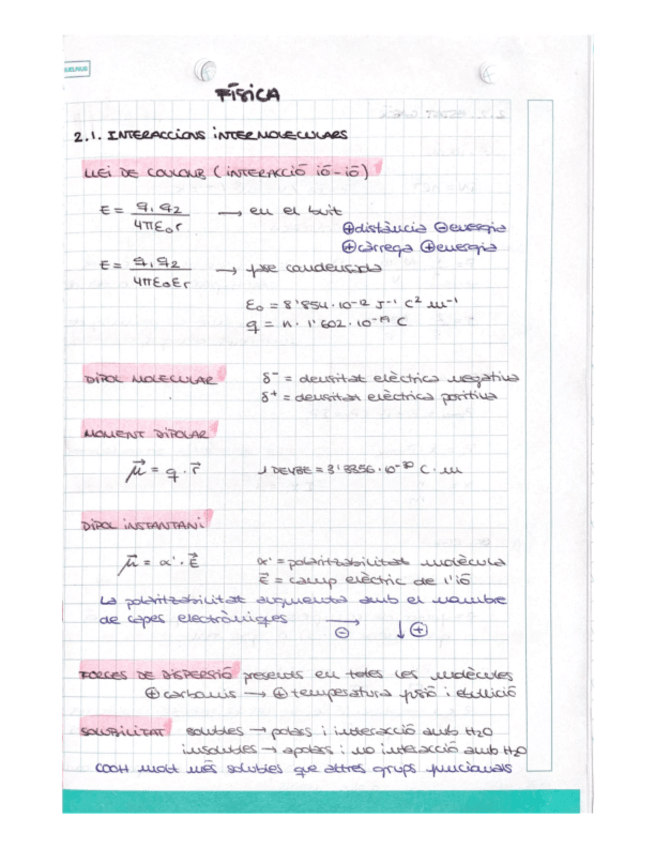 FÍSICA
2.1. INTERACCIONS INTERMOLECULARS
LLEI DE COULOUB (INTERACCIÓ IÓ-IÓ)
E = q₁ q₂ / 4πε₀r → en el buit
⊕distància ⊖energia
⊕càrrega ⊕energia
E = q₁ q₂ / 4πε₀εr → fase condensada
ε₀ = 8'854·10⁻¹² J⁻¹ C² m⁻¹
q = n · 1'602·10⁻¹⁹ C
DIPOL MOLECULAR δ⁻ = densitat elèctrica negativa
δ⁺ = densitat elèctrica positiva
MOMENT DIPOLAR
μ⃗ = q · r⃗ 1 DEYBE = 3'3356·10⁻³⁰ C·m
DIPOL INSTANTANI
μ⃗ = α' · E⃗ α' = polaritzabilitat molècula
E⃗ = camp elèctric de l'ió
La polaritzabilitat augmenta amb el nombre
de capes electròniques → ⊖ ↓⊕
FORCES DE DISPERSIÓ presents en totes les molècules
⊕ carbonis → ⊕ temperatura fusió i ebullició
SOLUBILITAT solubles → polars i interacció amb H₂O
insolubles → apolars i no interacció amb H₂O
COOH molt més solubles que altres grups funcionals